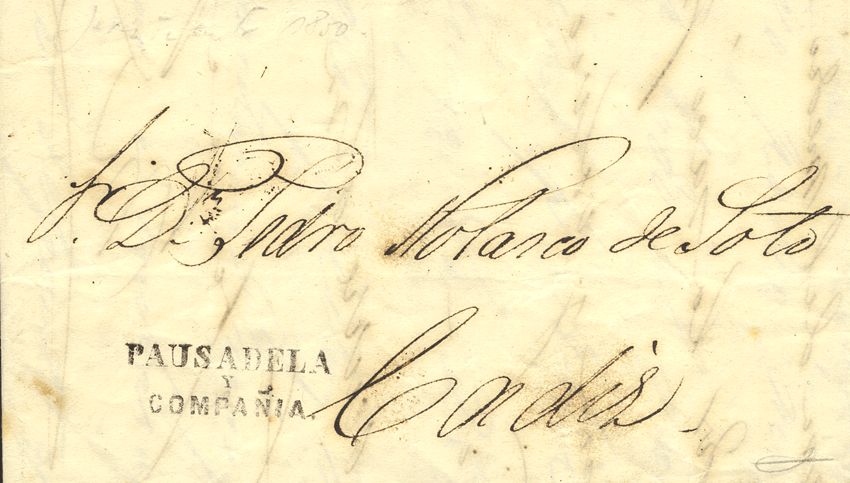 1850.
Sr. Dn. Pedro Nolasco de Soto
Cadiz.
PAUSADELA
Y
COMPAÑIA.